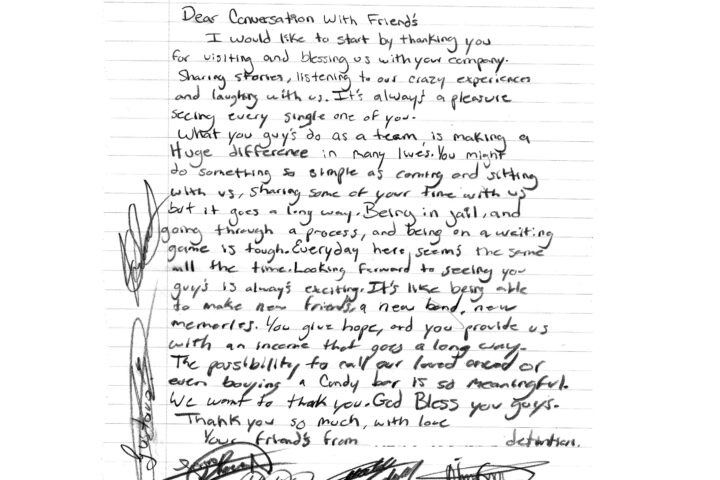 Dear Conversation With Friend's
I would like to start by thanking you
for visiting and blessing us with your company.
Sharing stories, listening to our crazy experiences
and laughing with us. It's always a pleasure
seeing every single one of you.
What you guy's do as a team, is making a
Huge difference in many lives. You might
do something so simple as coming and sitting
with us, sharing some of your time with us
but it goes a long way. Being in jail, and
going through a process, and being on a waiting
game is tough. Everyday here, seems the same
all the time. Looking forward to seeing you
guy's is always exciting. It's like being able
to make new friend's, a new bond, new
memories. You give hope, and you provide us
with an income that goes a long way.
The possibility to call our loved ones or
even buying a Candy bar is so meaningful.
We want to thank you. God Bless you guys.
Thank you so much, with love
Your friend's from detention.
Gustavo